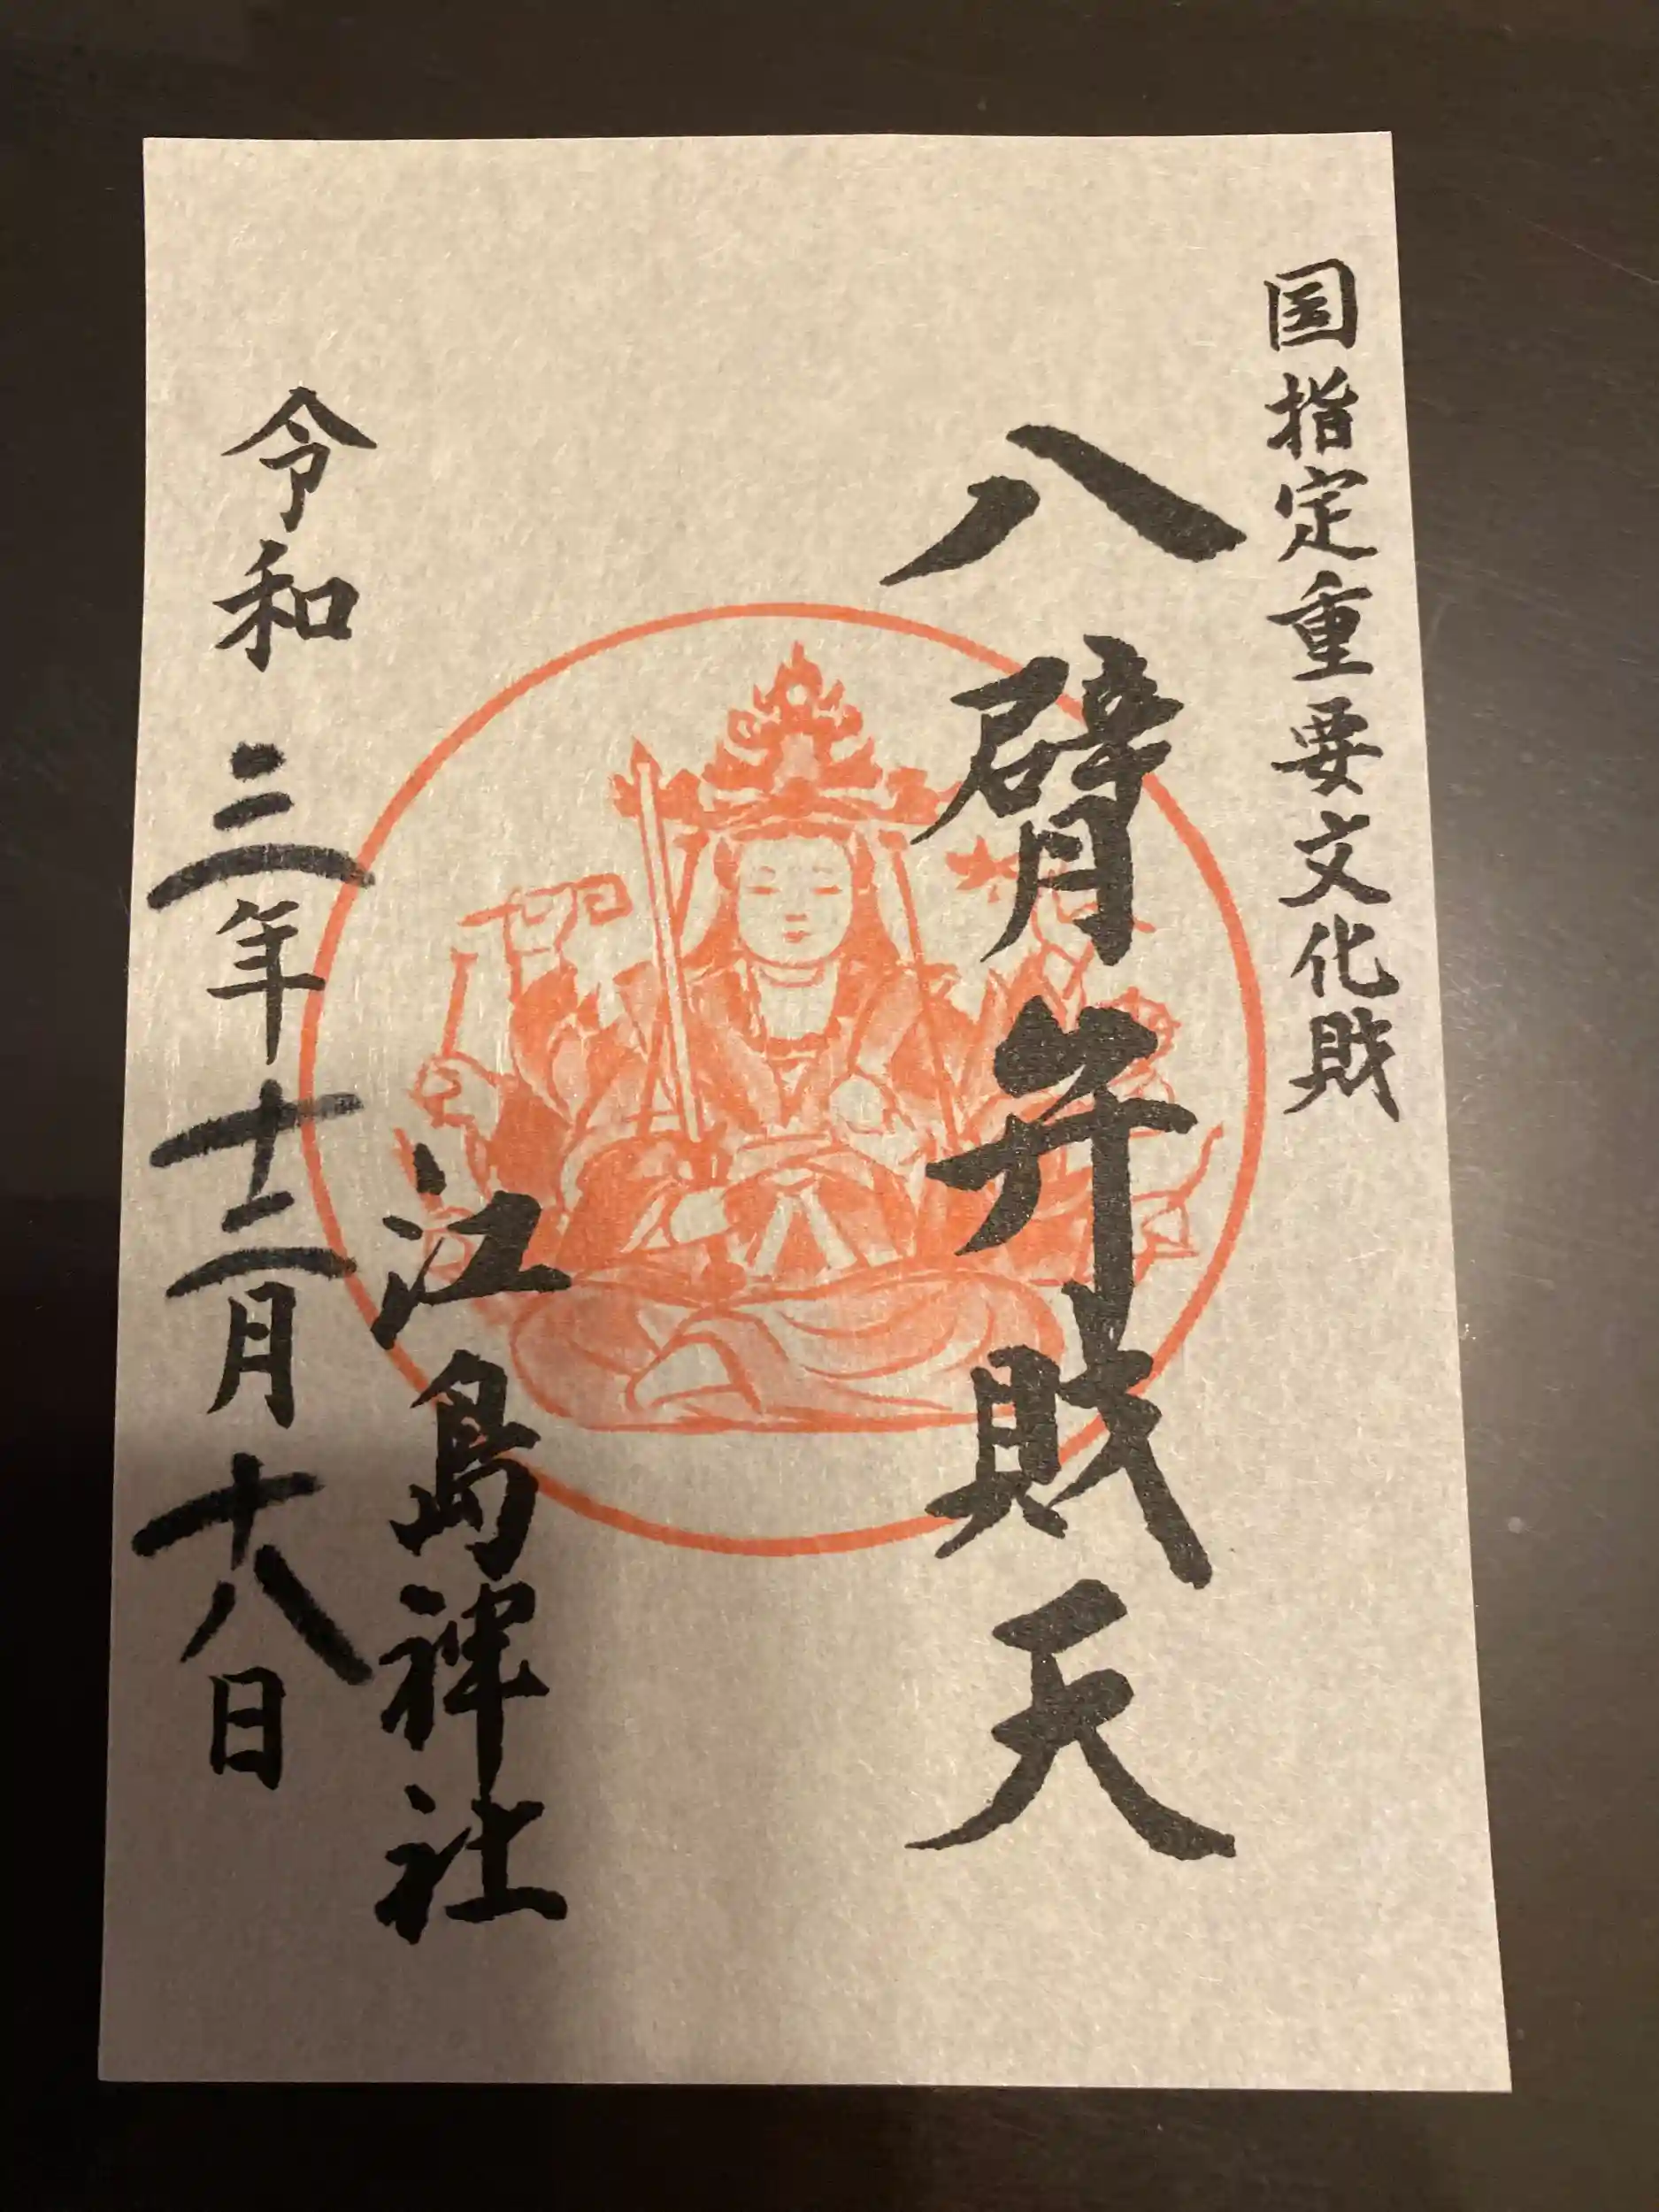 国指定重要文化財
八臂弁財天
江島神社
令和三年十二月十八日